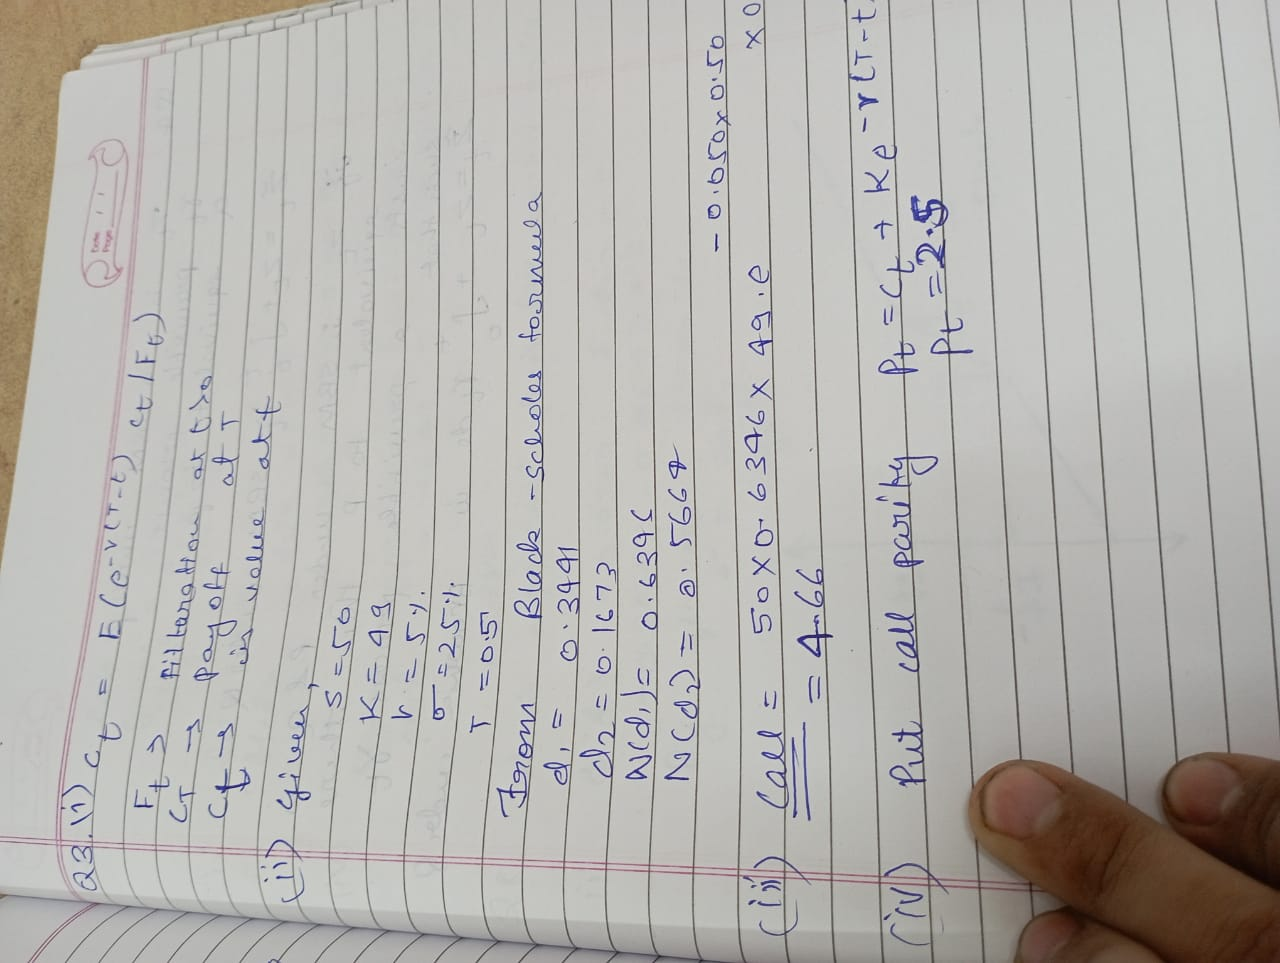 Date
Page
Q3. (i) Ct = E(e^-r(T-t) CT/Ft)
Ft → filteration at t>0
CT → pay off at T
Ct → is value at t
(ii) Given,
S = 50
K = 49
r = 5%
σ = 25%
T = 0.5
From Black-Scholes formula
d1 = 0.3441
d2 = 0.1673
N(d1) = 0.6346
N(d2) = 0.5664
(iii) Call = 50 x 0.6346 x 49.e^-0.050x0.50 x 0
= 4.66
(iv) Put call parity Pt = Ct + Ke^-r(T-t)
Pt = 2.5